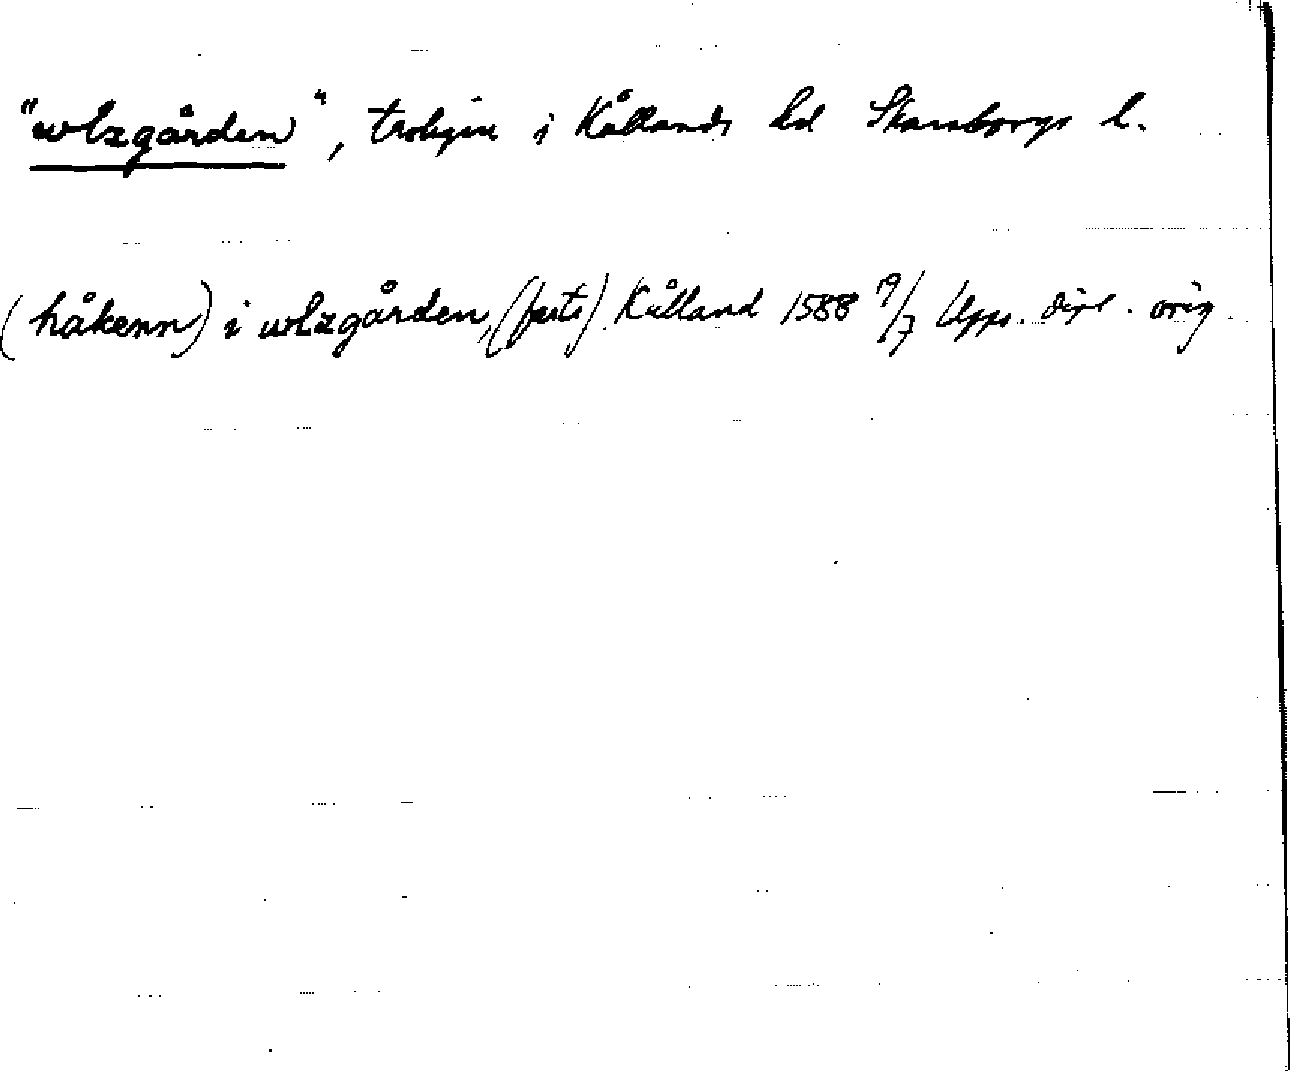 "wlzgården", troligen i Kållands hd Skaraborgs l.
(håkenn) i wlzgården, (fasti) Kålland 1588 19/7 Upps. dipl. orig